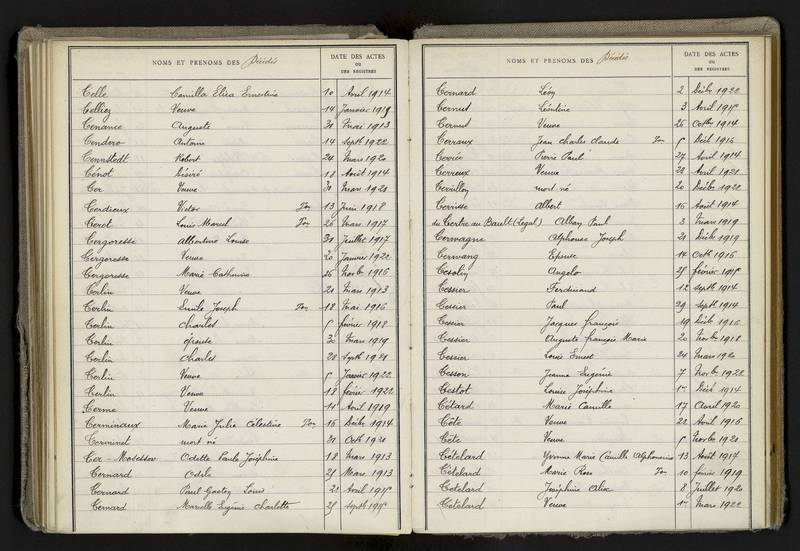 NOMS ET PRENOMS DES Décédés
DATE DES ACTES
OU
DES REGISTRES
Celle Camilla Elisa Ernestine 10 Avril 1914
Celliez Veuve 14 Janvier 1919
Cenance Auguste 31 Mai 1913
Cendero Antoine 14 Septb 1922
Cennstedt Robert 24 Mars 1920
Cénot Désiré 18 Août 1914
Cer Veuve 31 Mars 1920
Cerdieux Victor Ton 13 Juin 1918
Ceret Louis Marcel Ton 26 Mars 1917
Cergoresse Albertine Louise 31 Juillet 1917
Cergoresse Veuve 20 Janvier 1922
Cergoresse Marie Catherine 26 Novbe 1916
Cerlin Veuve 21 Mars 1913
Cerlin Emile Joseph Ton 18 Mai 1916
Cerlin Charles 5 février 1918
Cerlin épouse 30 Mars 1919
Cerlin Charles 28 Septb 1921
Cerlin Veuve 5 Janvier 1922
Cerlin Veuve 18 février 1922
Cerme Veuve 11 Avril 1919
Cerminaux Marie Julie Célestine Ton 16 Décbe 1914
Cerminel mort né 31 Octb 1921
Cer-Mosessov Odette Paule Joséphine 18 Mars 1913
Cernard Odile 25 Mars 1913
Cernard Paul Louis 21 Avril 1915
Cernard Marcelle Eugénie Charlotte 25 Septb 1915
NOMS ET PRENOMS DES Décédés
DATE DES ACTES
OU
DES REGISTRES
Cernard Léon 2 Décbe 1922
Cernut Léontine 3 Avril 1915
Cernut Veuve 26 Octbe 1914
Cerraux Jean Charles Claude Ton 5 Décb 1916
Pierre Paul 27 Avril 1914
Cerreux Veuve 22 Avril 1921
Cerrillon mort né 20 Décbe 1922
Cerrisse Albert 16 Août 1914
du Certre au Bault (Legal) Alban Paul 3 Mars 1919
Cerwagne Alphonse Joseph 21 Décb 1919
Cerwang Epouse 14 Octb 1916
Cesolin Angelo 25 février 1915
Cessier Ferdinand 12 Septb 1914
Cessier Paul 29 Septb 1914
Cessier Jacques françois 19 Décb 1916
Cessier Auguste françois Marie 20 Novbe 1918
Cessier Louis Ernest 24 Mars 1920
Cesson Jeanne Eugénie 7 Novbe 1922
Cestot Louise Joséphine 1er Décb 1914
Cétard Marie Camille 17 Avril 1920
Côte Veuve 21 Avril 1916
Côte Veuve 5 Novbe 1920
Cételard Yvonne Marie Camille Alphonsine 13 Août 1917
Cételard Marie Rose Ton 10 févrie 1919
Cetelard Joséphine Alix 8 Juillet 1920
Cetelard Veuve 1er Mars 1922